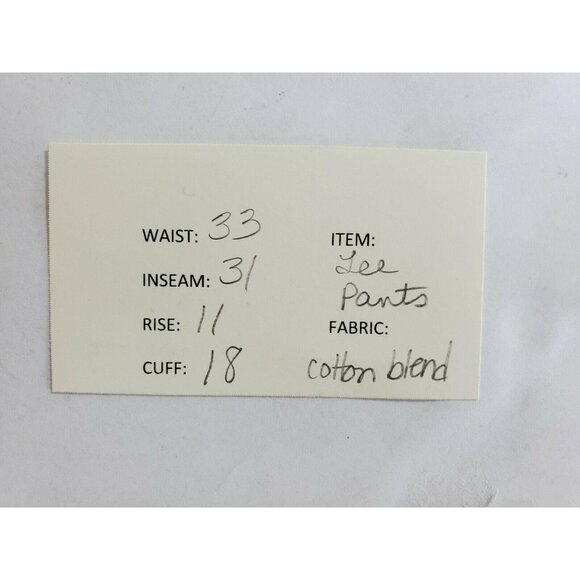 WAIST: 33
INSEAM: 31
RISE: 11
CUFF: 18
ITEM:
Lee
Pants
FABRIC:
cotton blend